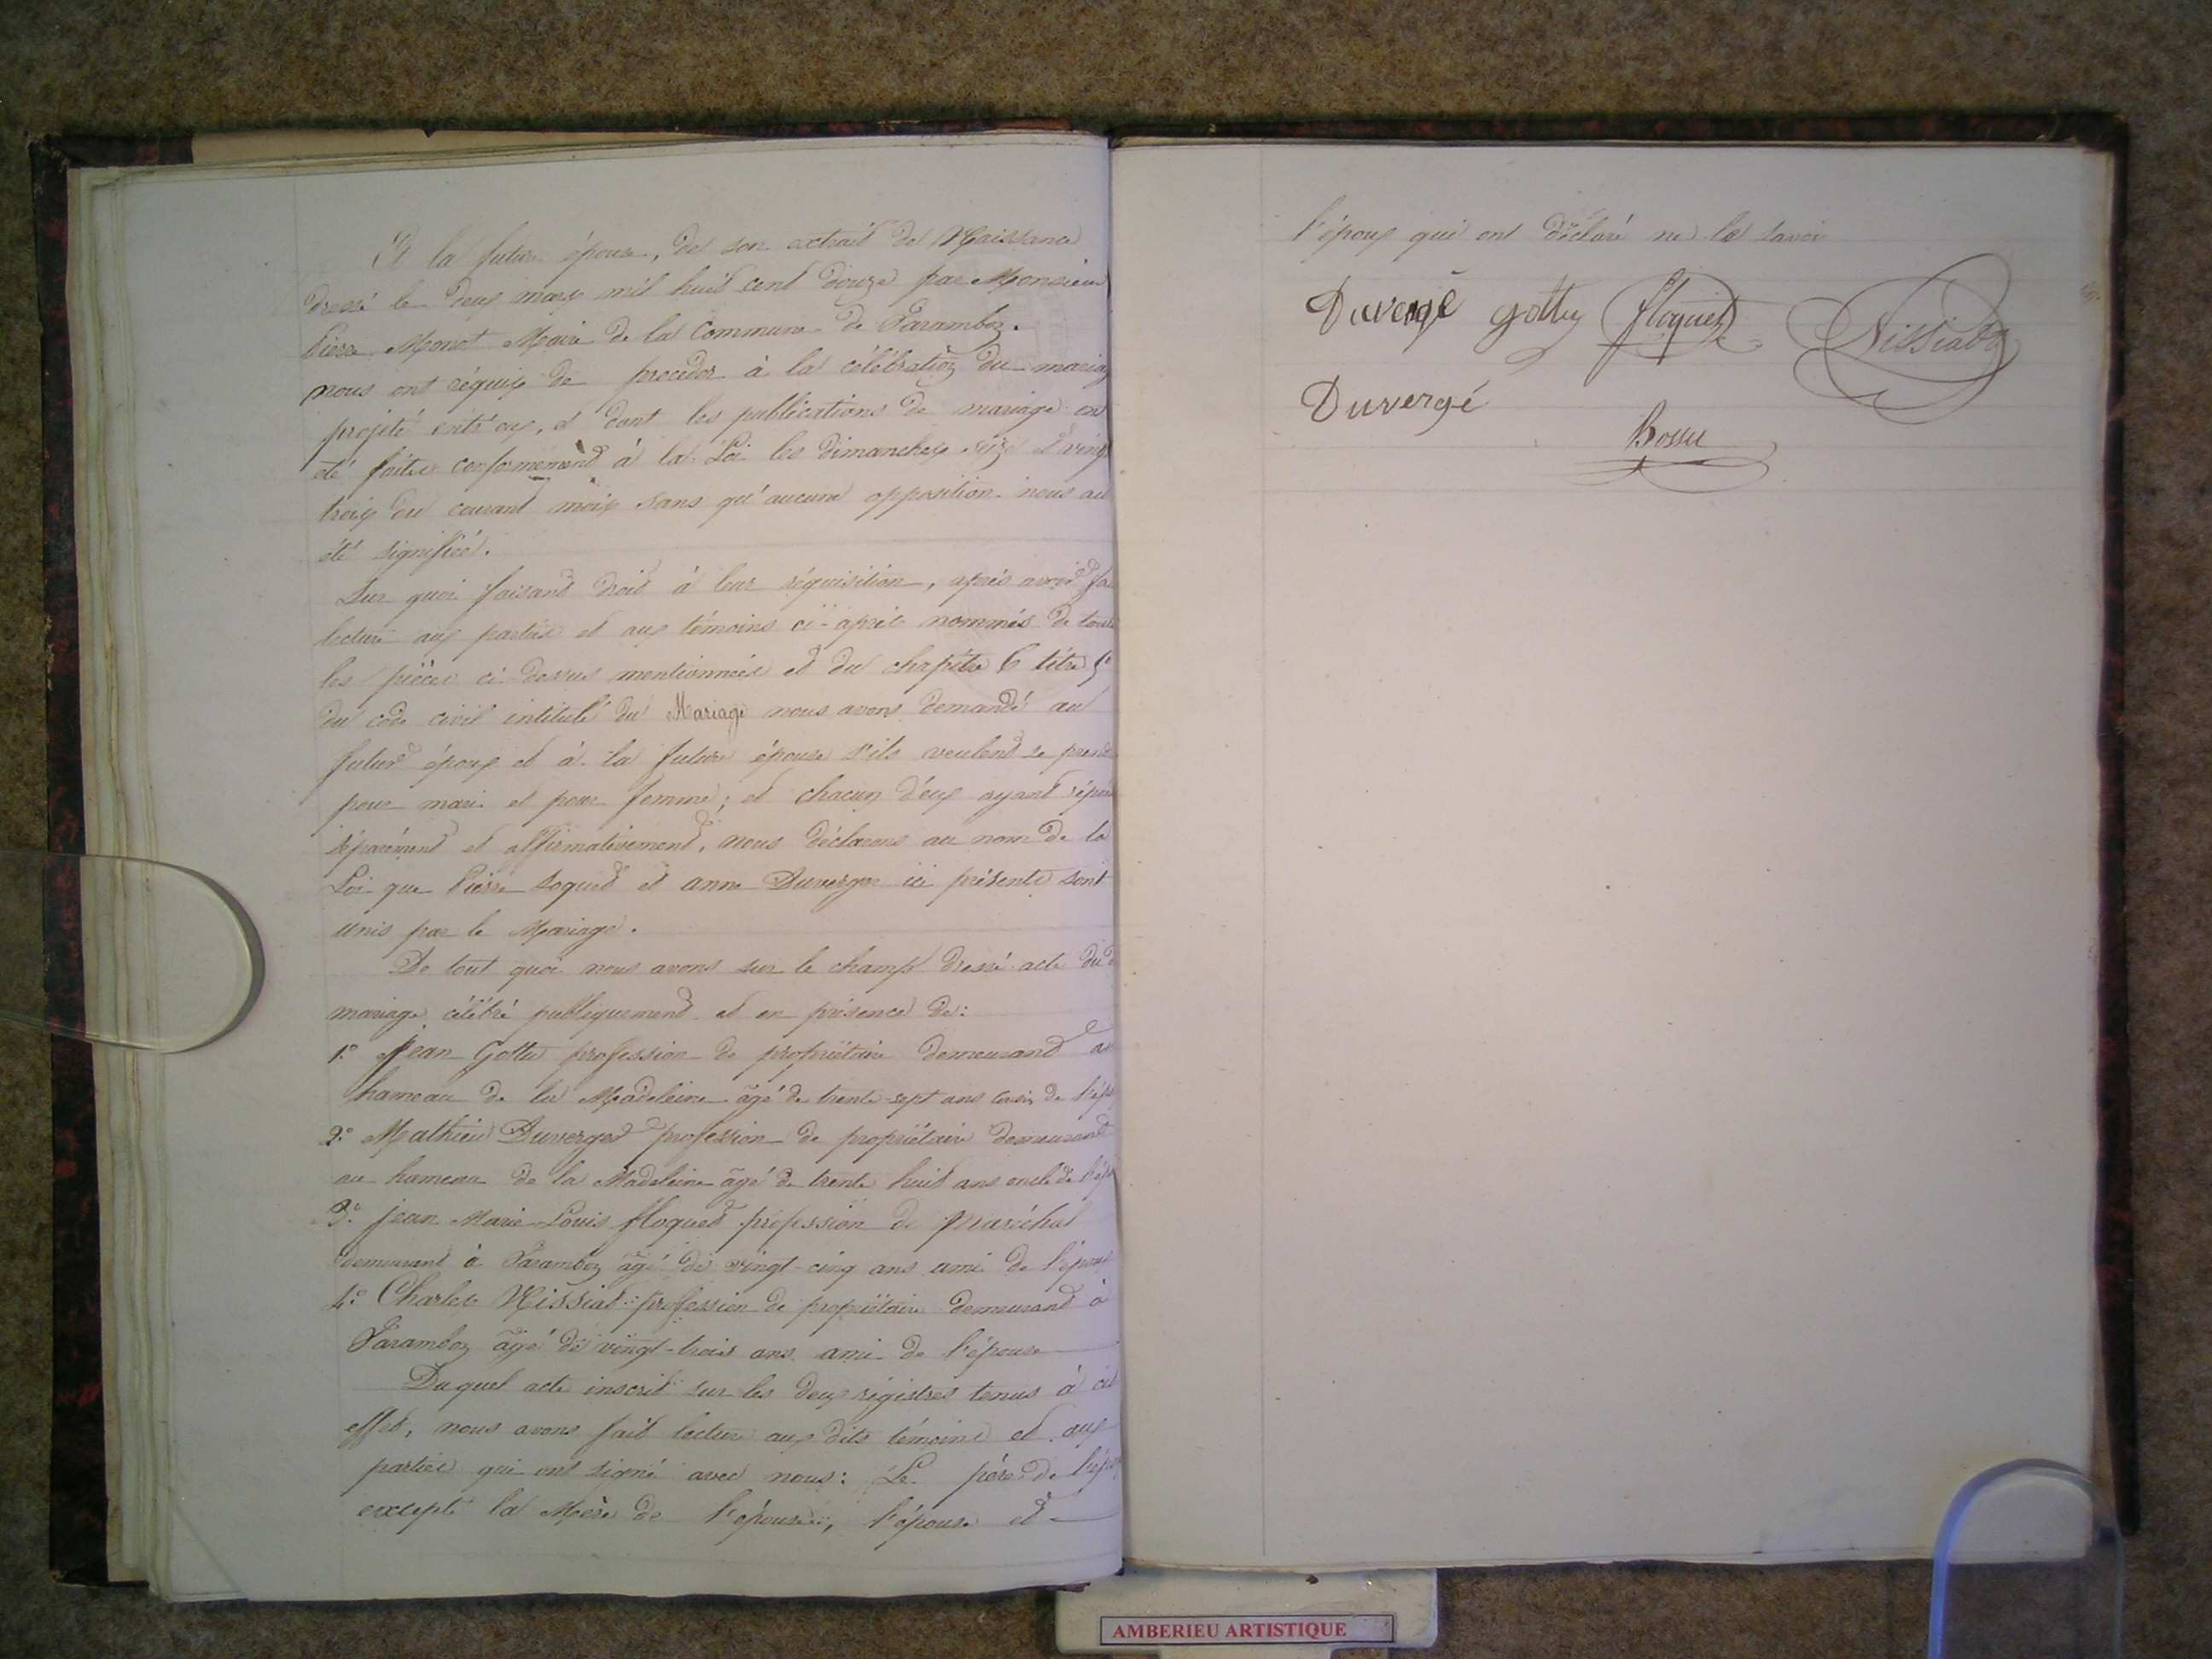 Et la future épouse, de son extrait de Naissance
dressé le deux mars mil huit cent douze par Monsieur
Pierre Monot Maire de la Commune de Varambon.
nous ont réquis de procéder à la célébration du mariag
projété entr'eux, et dont les publications de mariage on
été faites conformément à la Loi les dimanches seize et vingt
trois du courant mois sans qu'aucune opposition nous ait
été signifiée.
Sur quoi faisant droit à leur réquisition, après avoir fa
lecture aux parties et aux témoins ci-après nommés de toutes
les pièces ci dessus mentionnées et du chapitre 6 titre 5e
du code civil intitulé du Mariage nous avons demandé au
futur époux et à la future épouse s'ils veulent se prend
pour mari et pour femme; et chacun d'eux ayant répon
séparément et affirmativement, nous déclarons au nom de la
Loi que Pierre soquet et anne Duverger ici présents sont
unis par le Mariage.
De tout quoi nous avons sur le champ dressé acte du d
mariage célébré publiquement et en présence de:
1.° Jean Gottu profession de propriétaire demeurant au
hameau de la Madeleine âgé de trente-sept ans de l'épo
2.° Mathieu Duverger profession de propriétaire demeurant
au hameau de la Madeleine âgé de trente huit ans oncle de l'épo
3.° Jean Marie Louis floquet profession de Maréchal
demeurant à Varambon âgé de vingt-cinq ans ami de l'épous
4.° Charles Nissiat profession de propriétaire demeurant à
Varambon âgé de vingt-trois ans ami de l'épouse
Duquel acte inscrit sur les deux régistres tenus à cet
effet, nous avons fait lecture aux dits témoins et aux
parties qui ont signé avec nous: Le père de l'épou
excepté la Mère de l'épouse, l'épouse et
l'époux qui ont déclaré ne le savoir
Duvergé gottu floquet Nissiat
Duvergé
Bossu
AMBERIEU ARTISTIQUE